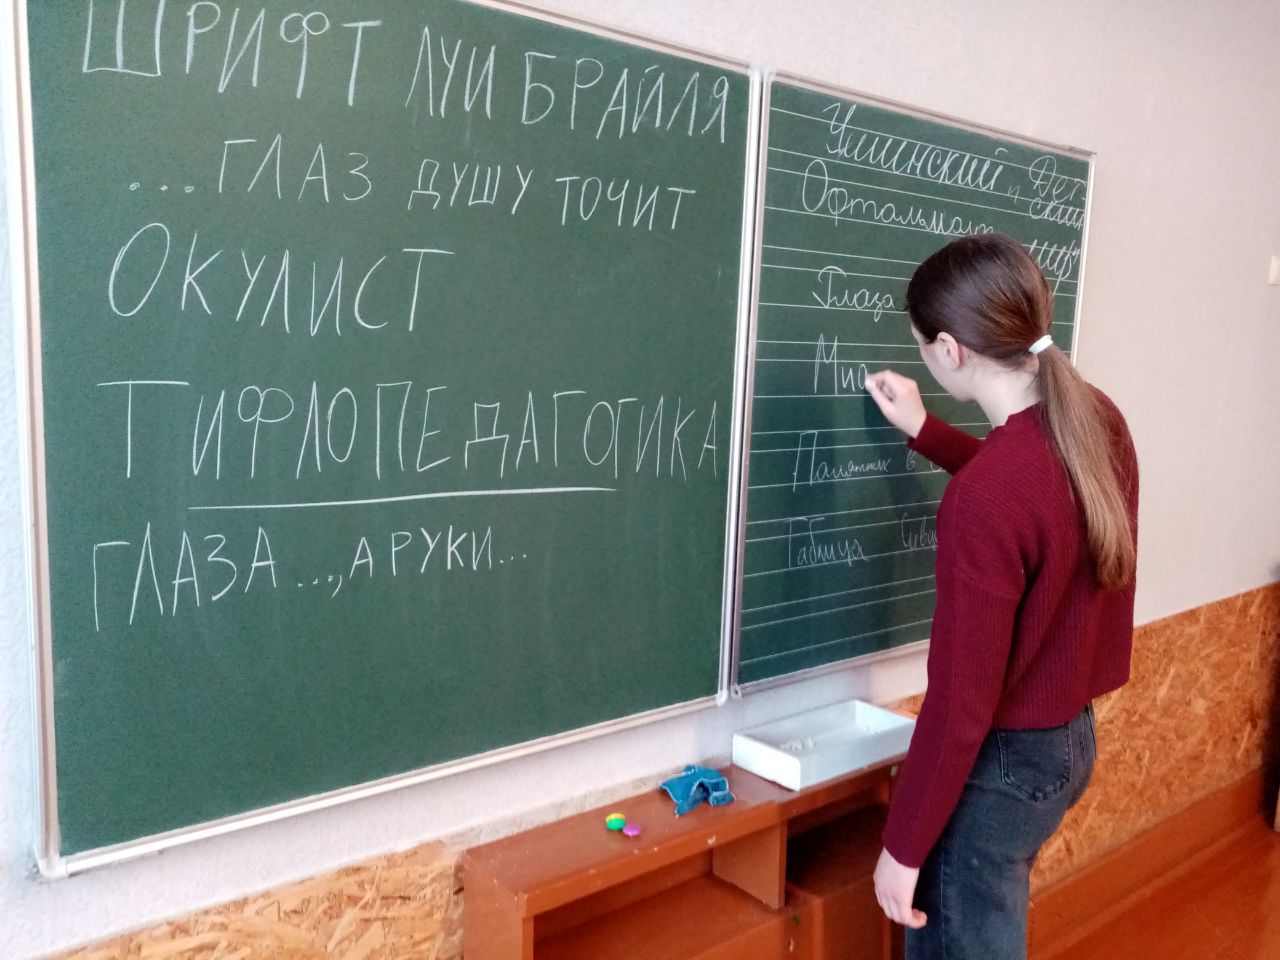 ШРИФТ ЛУИ БРАЙЛЯ
....ГЛАЗ ДУШУ ТОЧИТ
ОКУЛИСТ
ТИФЛОПЕДАГОГИКА
ГЛАЗА...,А РУКИ...
Ушинский п Дет
ский
Офтальмол
мир"
Глаза
Мио
Памятник в
Таблица Сивц